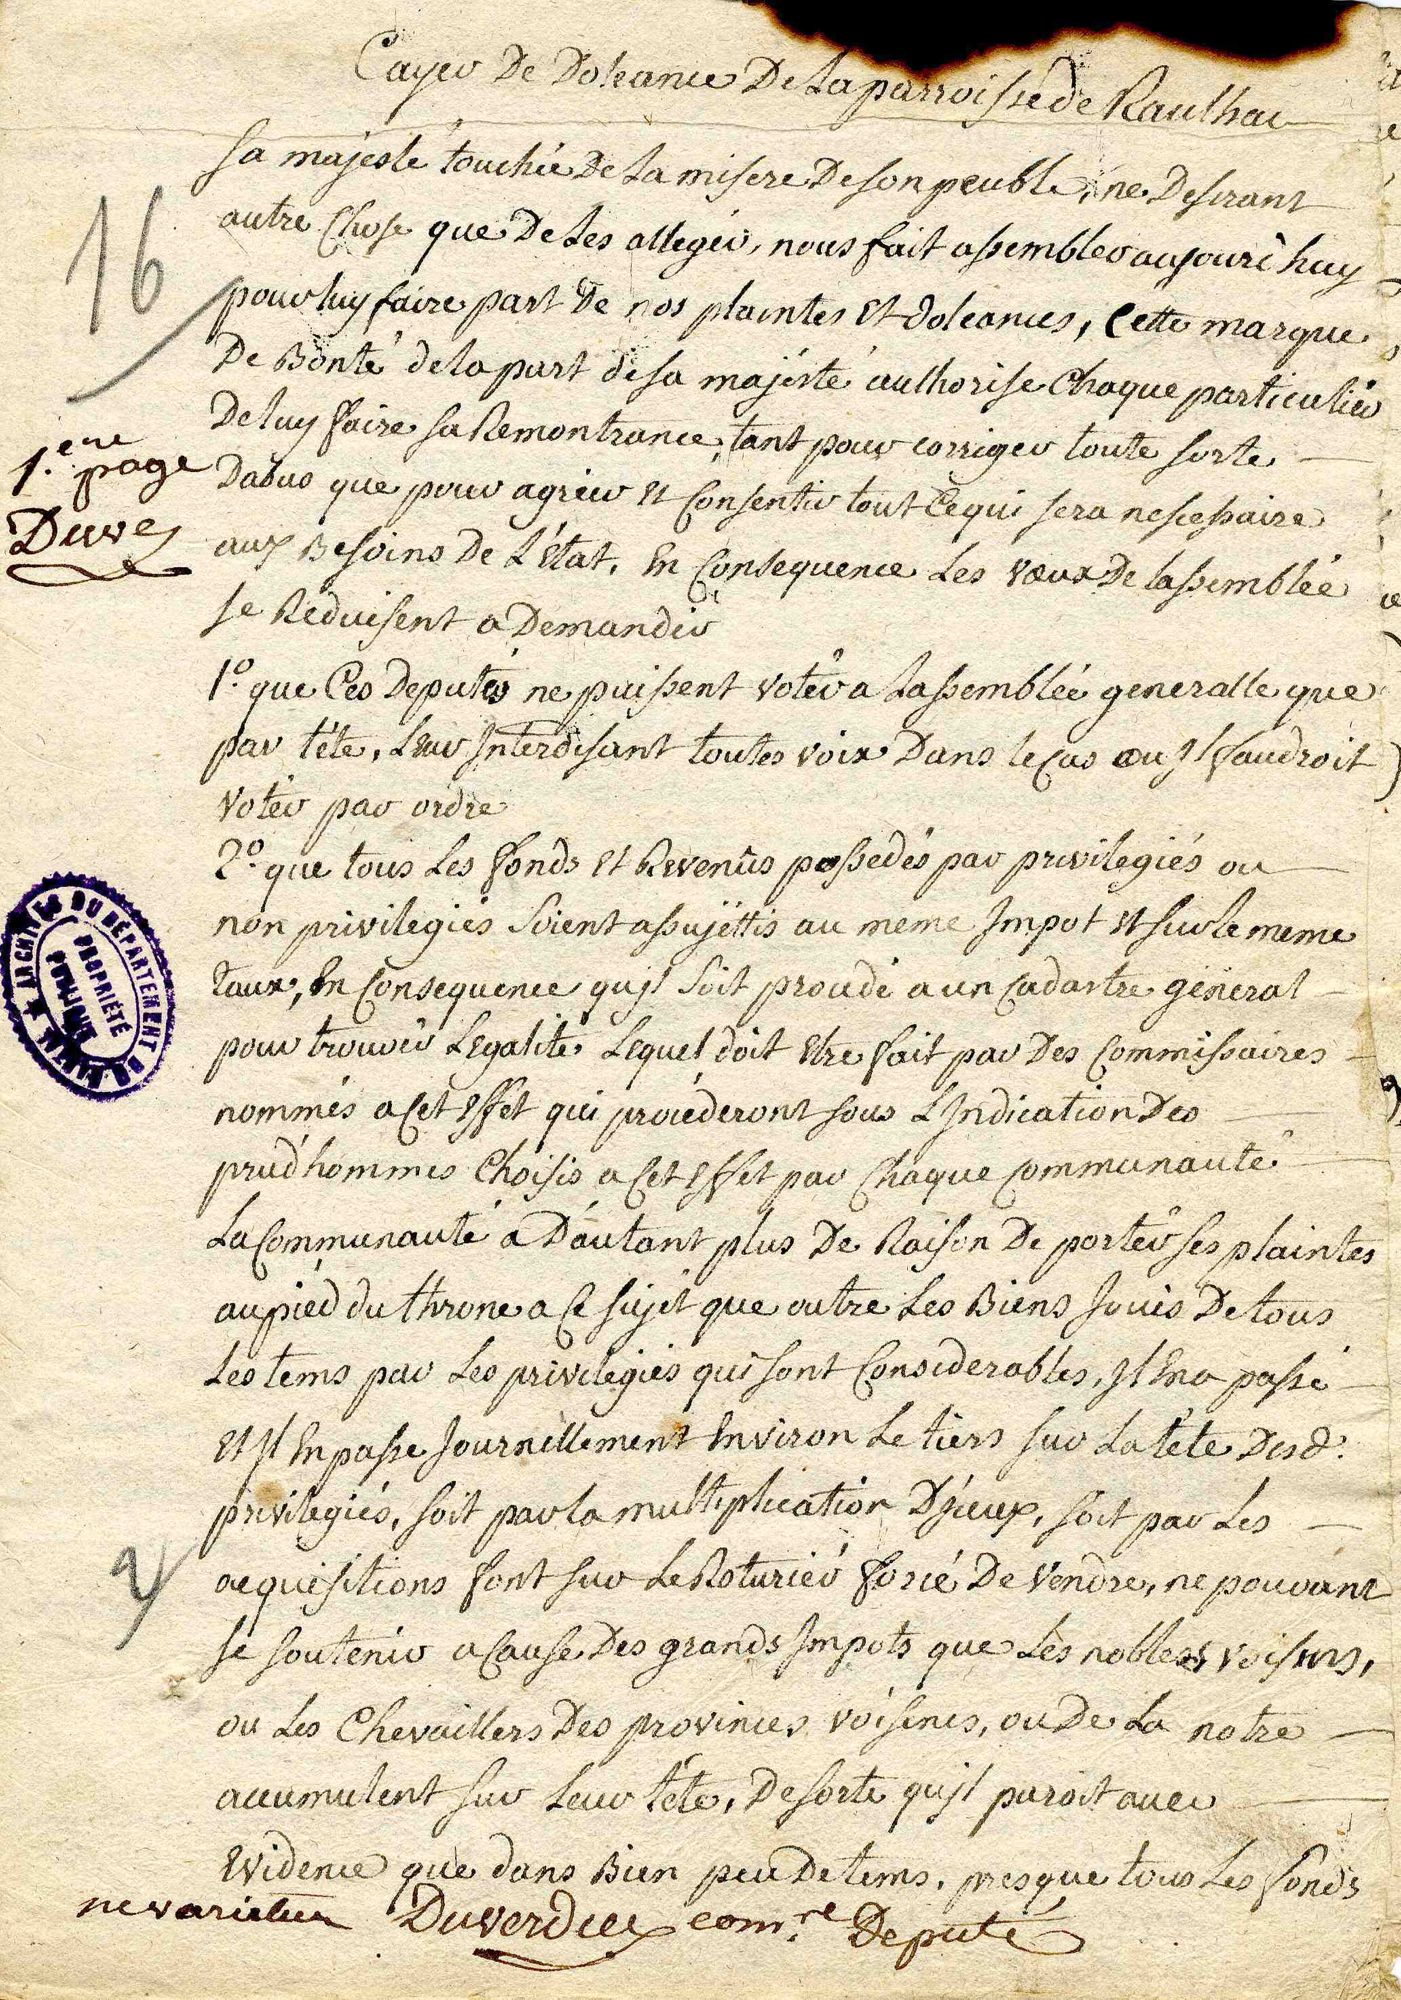 Cayer De Doleance De La parroisse de Raulhac
sa majesté touchée De La misere De son peuble, ne Desirant
autre Chose que De Les alleger, nous fait assembler aujourd'huy
pour luy faire part De nos plaintes Et doleances, Cette marque
De Bonté de la part de sa majesté authorise Chaque particulier
De luy faire sa Remontrance, tant pour corriger toute sorte
Dabus que pour agréer Et Consentir tout Ce qui sera nescessaire
aux Besoins De L'Etat. En Consequence Les vœux De lassemblée
se Reduisent a Demander
1º. que Ces Deputés ne puissent voter a Lassemblée generalle que
par tête, Leur Interdisant toutes voix Dans le Cas ou Jl faudroit
voter par ordre
2º. que tous Les fonds Et Revenus possedés par privilegiés ou
non privilegiés soient assujéttis au meme Impot Et sur le meme
taux, En Consequence qujl soit procedé a un Cadastre géneral
pour trouver Legalité Lequel doit Etre fait par Des Commissaires
nommés a Cet Effet qui procéderont sous L'Indication Des
prud'hommes Choisis a Cet Effet par Chaque Communauté
La Communauté a D'autant plus De Raison De porter ses plaintes
au piéd du throne a Ce sujét que outre Les Biens Jouis De tous
Les tems par Les privilegiés qui sont Considerables, Jl En a passé
Et Jl En passe Journellement Environ Le tiers sur La tête Desd.
privilegiés, soit par la multiplication D'jceux, soit par Les
acquisitions font sur Le Roturiér forcé De vendre, ne pouvant
se soutenir a Cause Des grands Impots que Les nobles voisins,
ou Les Chevailiers Des provinces voisines, ou De La notre
accumulent sur Leur tête, De sorte qujl paroit avec
Evidence que dans Bien peu De tems, presque tous Les fonds
ne varietur Duverdier com.re Deputé
16
1.ere page
Duver
2
ARCHIVES DU DÉPARTEMENT DU CANTAL
PROPRIÉTÉ
PUBLIQUE